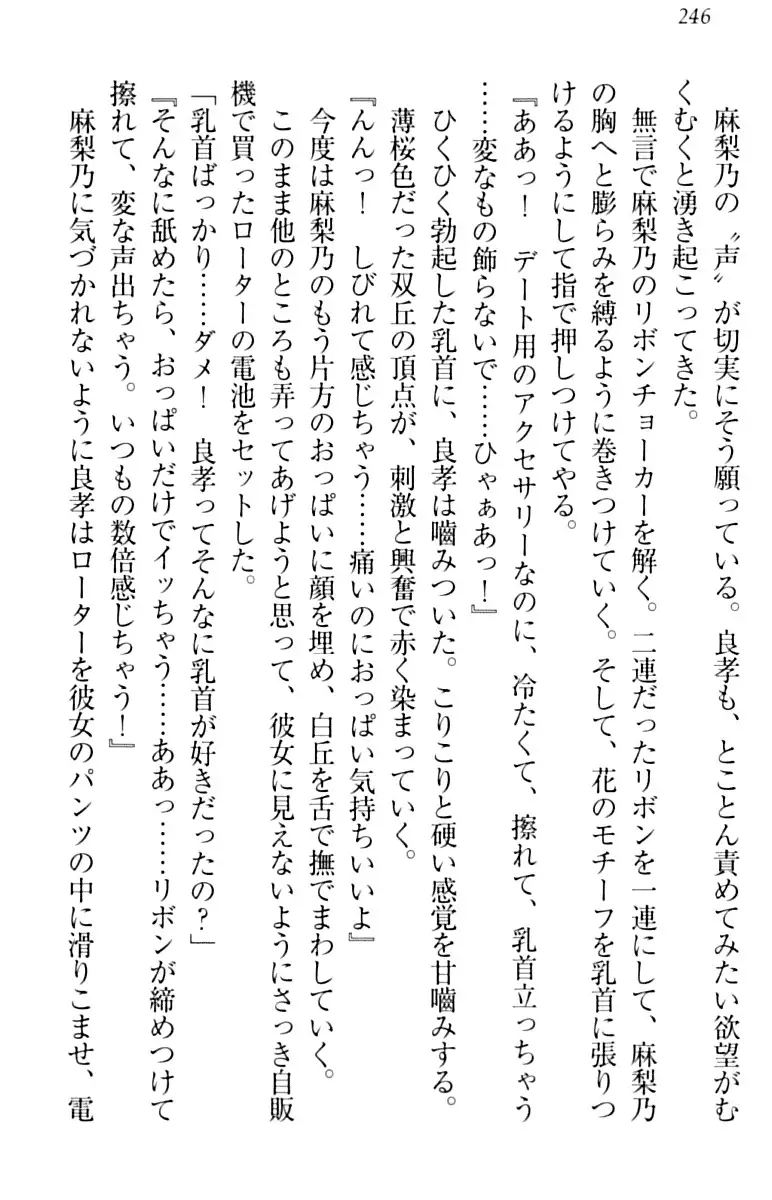 246
麻梨乃の〝声〟が切実にそう願っている。良孝も、とことん責めてみたい欲望がむ
くむくと湧き起こってきた。
無言で麻梨乃のリボンチョーカーを解く。二連だったリボンを一連にして、麻梨乃
の胸へと膨らみを縛るように巻きつけていく。そして、花のモチーフを乳首に張りつ
けるようにして指で押しつけてやる。
『ああっ！　デート用のアクセサリーなのに、冷たくて、擦れて、乳首立っちゃう
……変なもの飾らないで……ひゃぁあっ！』
ひくひく勃起した乳首に、良孝は嚙みついた。こりこりと硬い感覚を甘嚙みする。
薄桜色だった双丘の頂点が、刺激と興奮で赤く染まっていく。
『んんっ！　しびれて感じちゃう……痛いのにおっぱい気持ちいいよ』
今度は麻梨乃のもう片方のおっぱいに顔を埋め、白丘を舌で撫でまわしていく。
このまま他のところも弄ってあげようと思って、彼女に見えないようにさっき自販
機で買ったローターの電池をセットした。
「乳首ばっかり……ダメ！　良孝ってそんなに乳首が好きだったの？」
『そんなに舐めたら、おっぱいだけでイッちゃう……ああっ……リボンが締めつけて
擦れて、変な声出ちゃう。いつもの数倍感じちゃう！』
麻梨乃に気づかれないように良孝はローターを彼女のパンツの中に滑りこませ、電